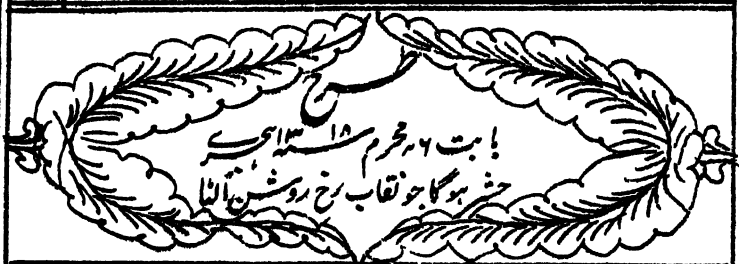 طرح
بابت ۶ محرم ۱۳۱۸ ہجری
حشر ہوگا جو نقاب رخ روشن اُلٹا